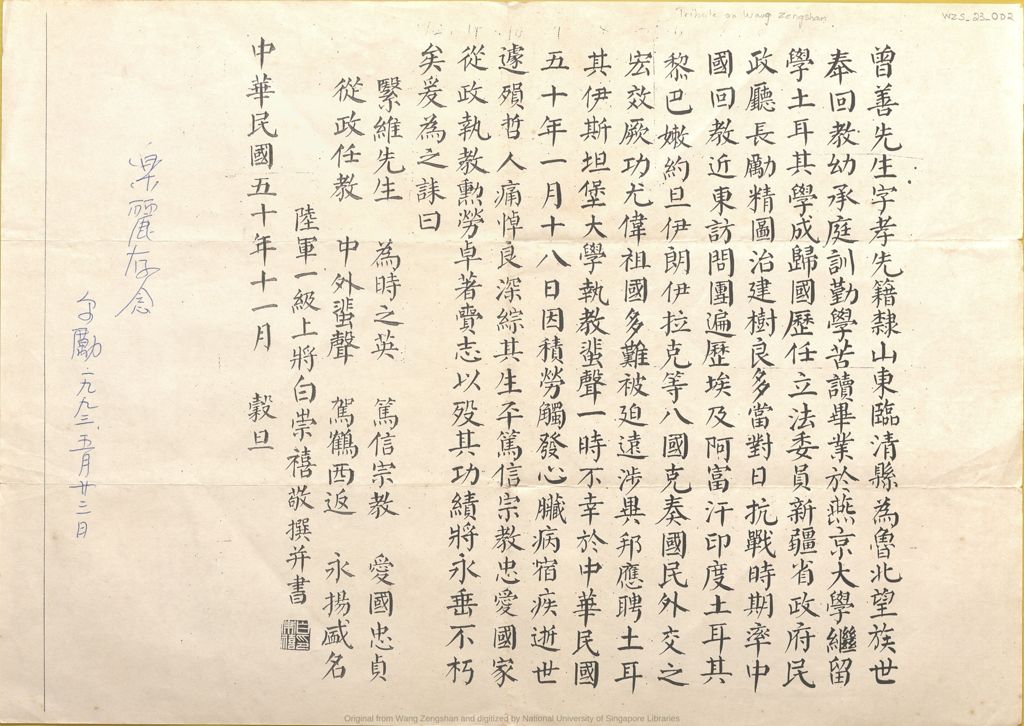 Tribute on Wang Zengshan
WZS_23_002
曾善先生字孝先籍隸山東臨清縣為魯北望族世
奉回教幼承庭訓勤學苦讀畢業於燕京大學繼留
學土耳其學成歸國歷任立法委員新疆省政府民
政廳長勵精圖治建樹良多當對日抗戰時期率中
國回教近東訪問團遍歷埃及阿富汗印度土耳其
黎巴嫩約旦伊朗伊拉克等八國克奏國民外交之
宏效厥功尤偉祖國多難被迫遠涉異邦應聘土耳
其伊斯坦堡大學執教蜚聲一時不幸於中華民國
五十年一月十八日因積勞觸發心臟病宿疾逝世
遽殞哲人痛悼良深綜其生平篤信宗教忠愛國家
從政執教勲勞卓著賷志以歿其功績將永垂不朽
矣爰為之誄曰
繄維先生 為時之英 篤信宗教 愛國忠貞
從政任教 中外蜚聲 駕鶴西返 永揚威名
陸軍一級上將白崇禧敬撰并書
中華民國五十年十一月 穀旦
樂麗存念
勵 一九九三.五月廿三日
Original from Wang Zengshan and digitized by National University of Singapore Libraries